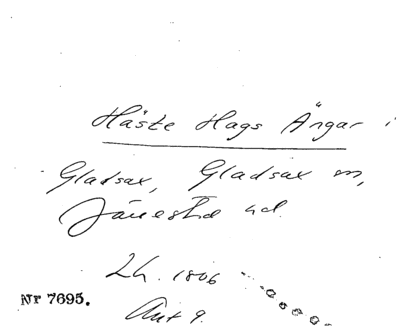 Häste Hags Ängar i
Gladsax, Gladsax sn,
Järrestad hd.
Lh. 1806
Nr 7695.
Akt 9.